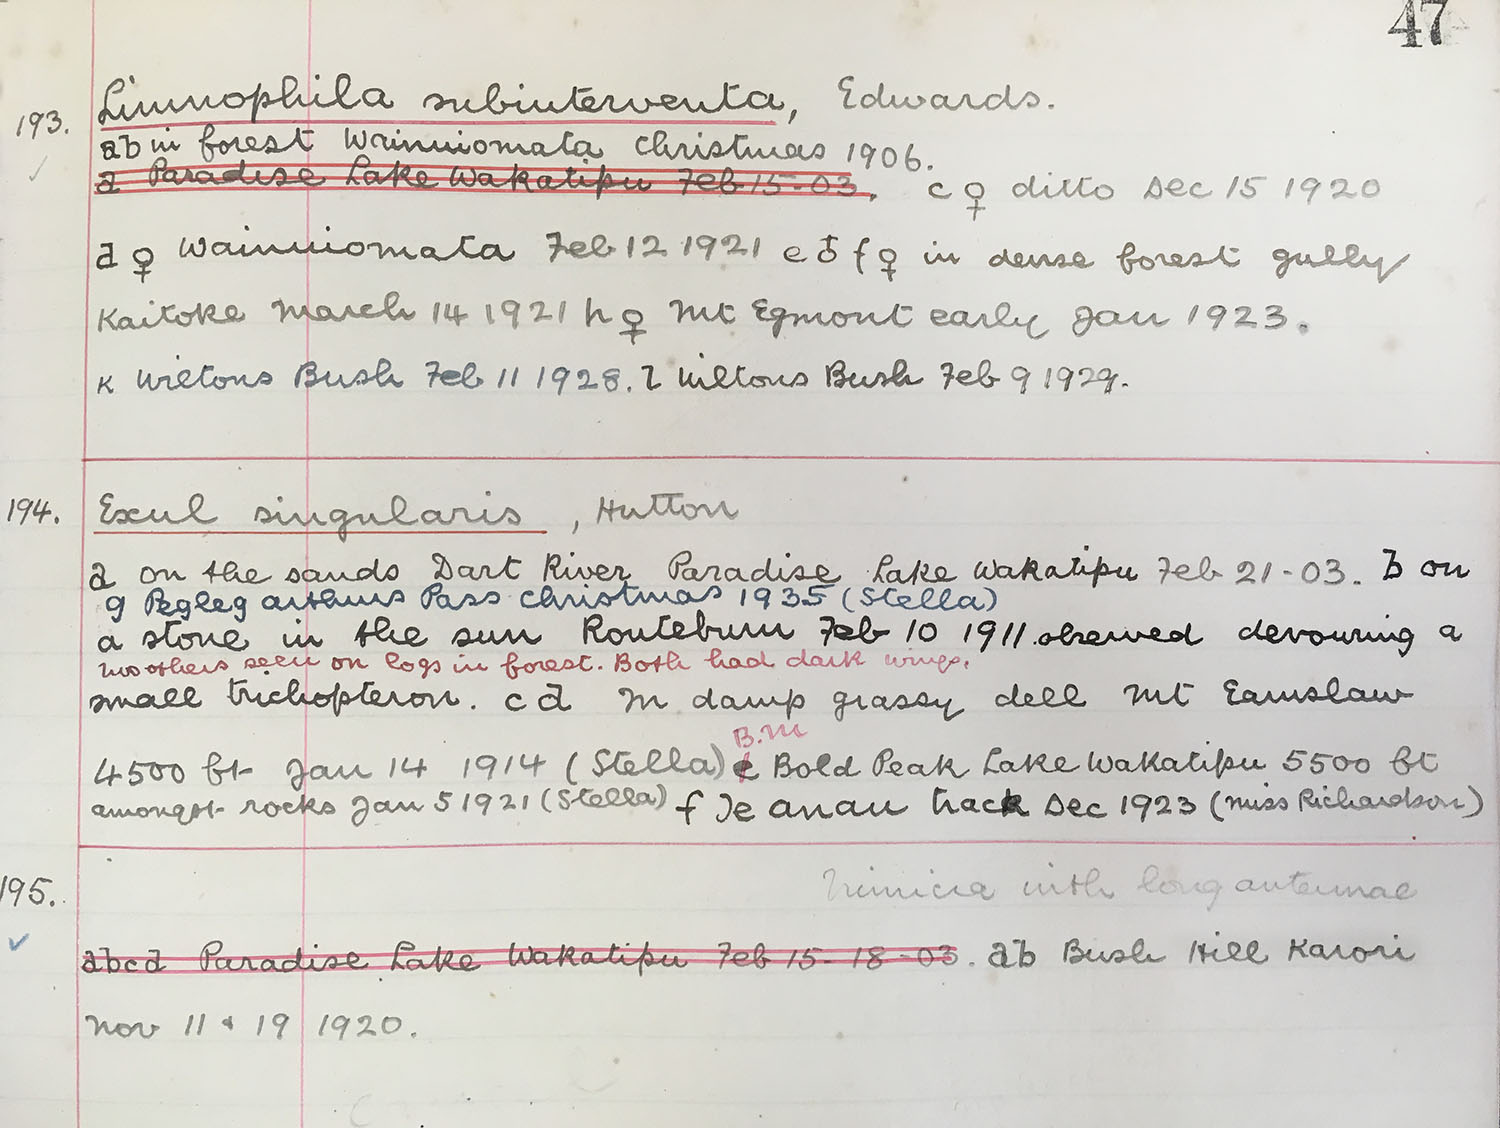 47
193. Limnophila subinterventa, Edwards.
ab in forest Wainuiomata Christmas 1906.
a Paradise Lake Wakatipu Feb 15-03. c ♀ ditto Dec 15 1920
d ♀ Wainuiomata Feb 12 1921 e ♂ f ♀ in dense forest gully
Kaitoke March 14 1921 h ♀ Mt Egmont early Jan 1923.
k Wiltons Bush Feb 11 1928. l Wiltons Bush Feb 9 1929.
194. Exul singularis, Hutton
a on the sands Dart River Paradise Lake Wakatipu Feb 21-03. b on
g Pegleg Arthurs Pass Christmas 1935 (Stella)
a stone in the sun Routeburn Feb 10 1911. observed devouring a
two others seen on logs in forest. Both had dark wings.
small trichopteron. c d In damp grassy dell Mt Earnslaw
B.M
4500 ft Jan 14 1914 (Stella) e Bold Peak Lake Wakatipu 5500 ft
amongst rocks Jan 5 1921 (Stella) f Te anau track Dec 1923 (Miss Richardson)
195. with long antennae
abcd Paradise Lake Wakatipu Feb 15-18-03. ab Bush Hill Karori
Nov 11 & 19 1920.